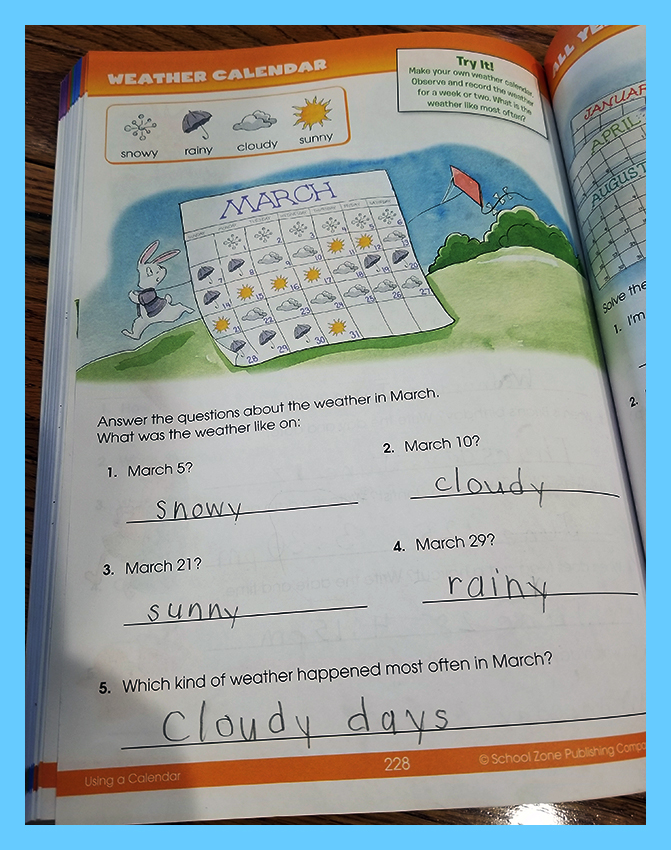 WEATHER CALENDAR
Try It!
Make your own weather calendar.
Observe and record the weather
for a week or two. What is the
weather like most often?
snowy rainy cloudy sunny
MARCH
SUNDAY MONDAY TUESDAY WEDNESDAY THURSDAY FRIDAY SATURDAY
1 2 3 4 5 6
7 8 9 10 11 12 13
14 15 16 17 18 19 20
21 22 23 24 25 26 27
28 29 30 31
Answer the questions about the weather in March.
What was the weather like on:
1. March 5?
snowy
2. March 10?
cloudy
3. March 21?
sunny
4. March 29?
rainy
5. Which kind of weather happened most often in March?
Cloudy days
Using a Calendar
228
© School Zone Publishing Compa
ALL YE
JANUAR
APRIL
AUGUST
Solve the
1. I'm
2.